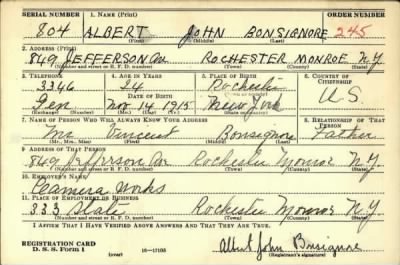 SERIAL NUMBER 1. NAME (Print) ORDER NUMBER
804 ALBERT JOHN BONSIGNORE 245
(First) (Middle) (Last)
2. ADDRESS (Print)
849 JEFFERSON Av. ROCHESTER MONROE N.Y.
(Number and street or R. F. D. number) (Town) (County) (State)
3. TELEPHONE 4. AGE IN YEARS 5. PLACE OF BIRTH 6. COUNTRY OF CITIZENSHIP
3346 24 Rochester
DATE OF BIRTH U.S.
Gen Nov. 14 1915 New York
(Exchange) (Number) (Mo.) (Day) (Yr.) (State or country)
7. NAME OF PERSON WHO WILL ALWAYS KNOW YOUR ADDRESS 8. RELATIONSHIP OF THAT PERSON
Mr. Vincent Bonsignore Father
(Mr., Mrs., Miss) (First) (Middle) (Last)
9. ADDRESS OF THAT PERSON
849 Jefferson Av Rochester Monroe N.Y.
(Number and street or R. F. D. number) (Town) (County) (State)
10. EMPLOYER'S NAME
Camera Works
11. PLACE OF EMPLOYMENT OR BUSINESS
333 State Rochester Monroe N.Y.
(Number and street or R. F. D. number) (Town) (County) (State)
I AFFIRM THAT I HAVE VERIFIED ABOVE ANSWERS AND THAT THEY ARE TRUE.
REGISTRATION CARD
D. S. S. Form 1 (over) 16—17105 Albert John Bonsignore
(Registrant's signature)